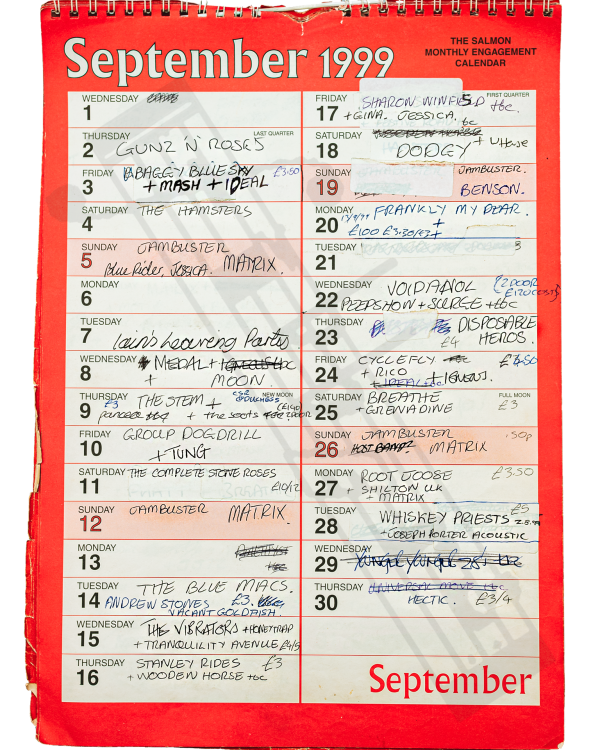 September 1999
THE SALMON
MONTHLY ENGAGEMENT
CALENDAR
WEDNESDAY
1
THURSDAY LAST QUARTER
2 GUNZ 'N' ROSES
FRIDAY BAGGY BLUE SKY £3.50
3 + MASH + IDEAL
SATURDAY THE HAMSTERS
4
SUNDAY JAMBUSTER
5 Blue Rider, JESSICA. MATRIX.
MONDAY
6
TUESDAY
7 Iain's Leaving Party
WEDNESDAY MEDAL +
8 + MOON.
THURSDAY THE STEM + NEW MOON
9 £3 + the scots
FRIDAY GROUP DOGDRILL
10 + TUNGT
SATURDAY THE COMPLETE STONE ROSES
11 £10/12
SUNDAY JAMBUSTER
12 MATRIX.
MONDAY
13 tbc
TUESDAY THE BLUE MACS.
14 ANDREW STONES £3.
VACANT GOLDFISH.
WEDNESDAY THE VIBRATORS + HONEYTRAP
15 + TRANQUILITY AVENUE £4/5
THURSDAY STANLEY RIDES £3
16 + WOODEN HORSE tbc
FRIDAY SHARON WINFIELD tbc FIRST QUARTER
17 + GINA. JESSICA. tbc
SATURDAY
18 DODGY + U Horse
SUNDAY JAMBUSTER.
19 BENSON.
MONDAY FRANKLY MY DEAR.
20 +
£100 £3.50/£3 +
TUESDAY
21 3
WEDNESDAY VOIDANOL
22 PEEPSHOW + SURGE + tbc
THURSDAY DISPOSABLE
23 £4 HEROS.
FRIDAY CYCLEFLY
24 + RICO
SATURDAY BREATHE FULL MOON
25 + GRENADINE £3
SUNDAY JAMBUSTER .50p
26 HOST BAND? MATRIX
MONDAY ROOT JOOSE £3.50
27 + SHILTON UK
+ MATRIX
TUESDAY WHISKEY PRIESTS £5
28 + JOSEPH PORTER ACOUSTIC
WEDNESDAY
29
THURSDAY UNIVERSAL MOVE tbc
30 HECTIC. £3/4
September